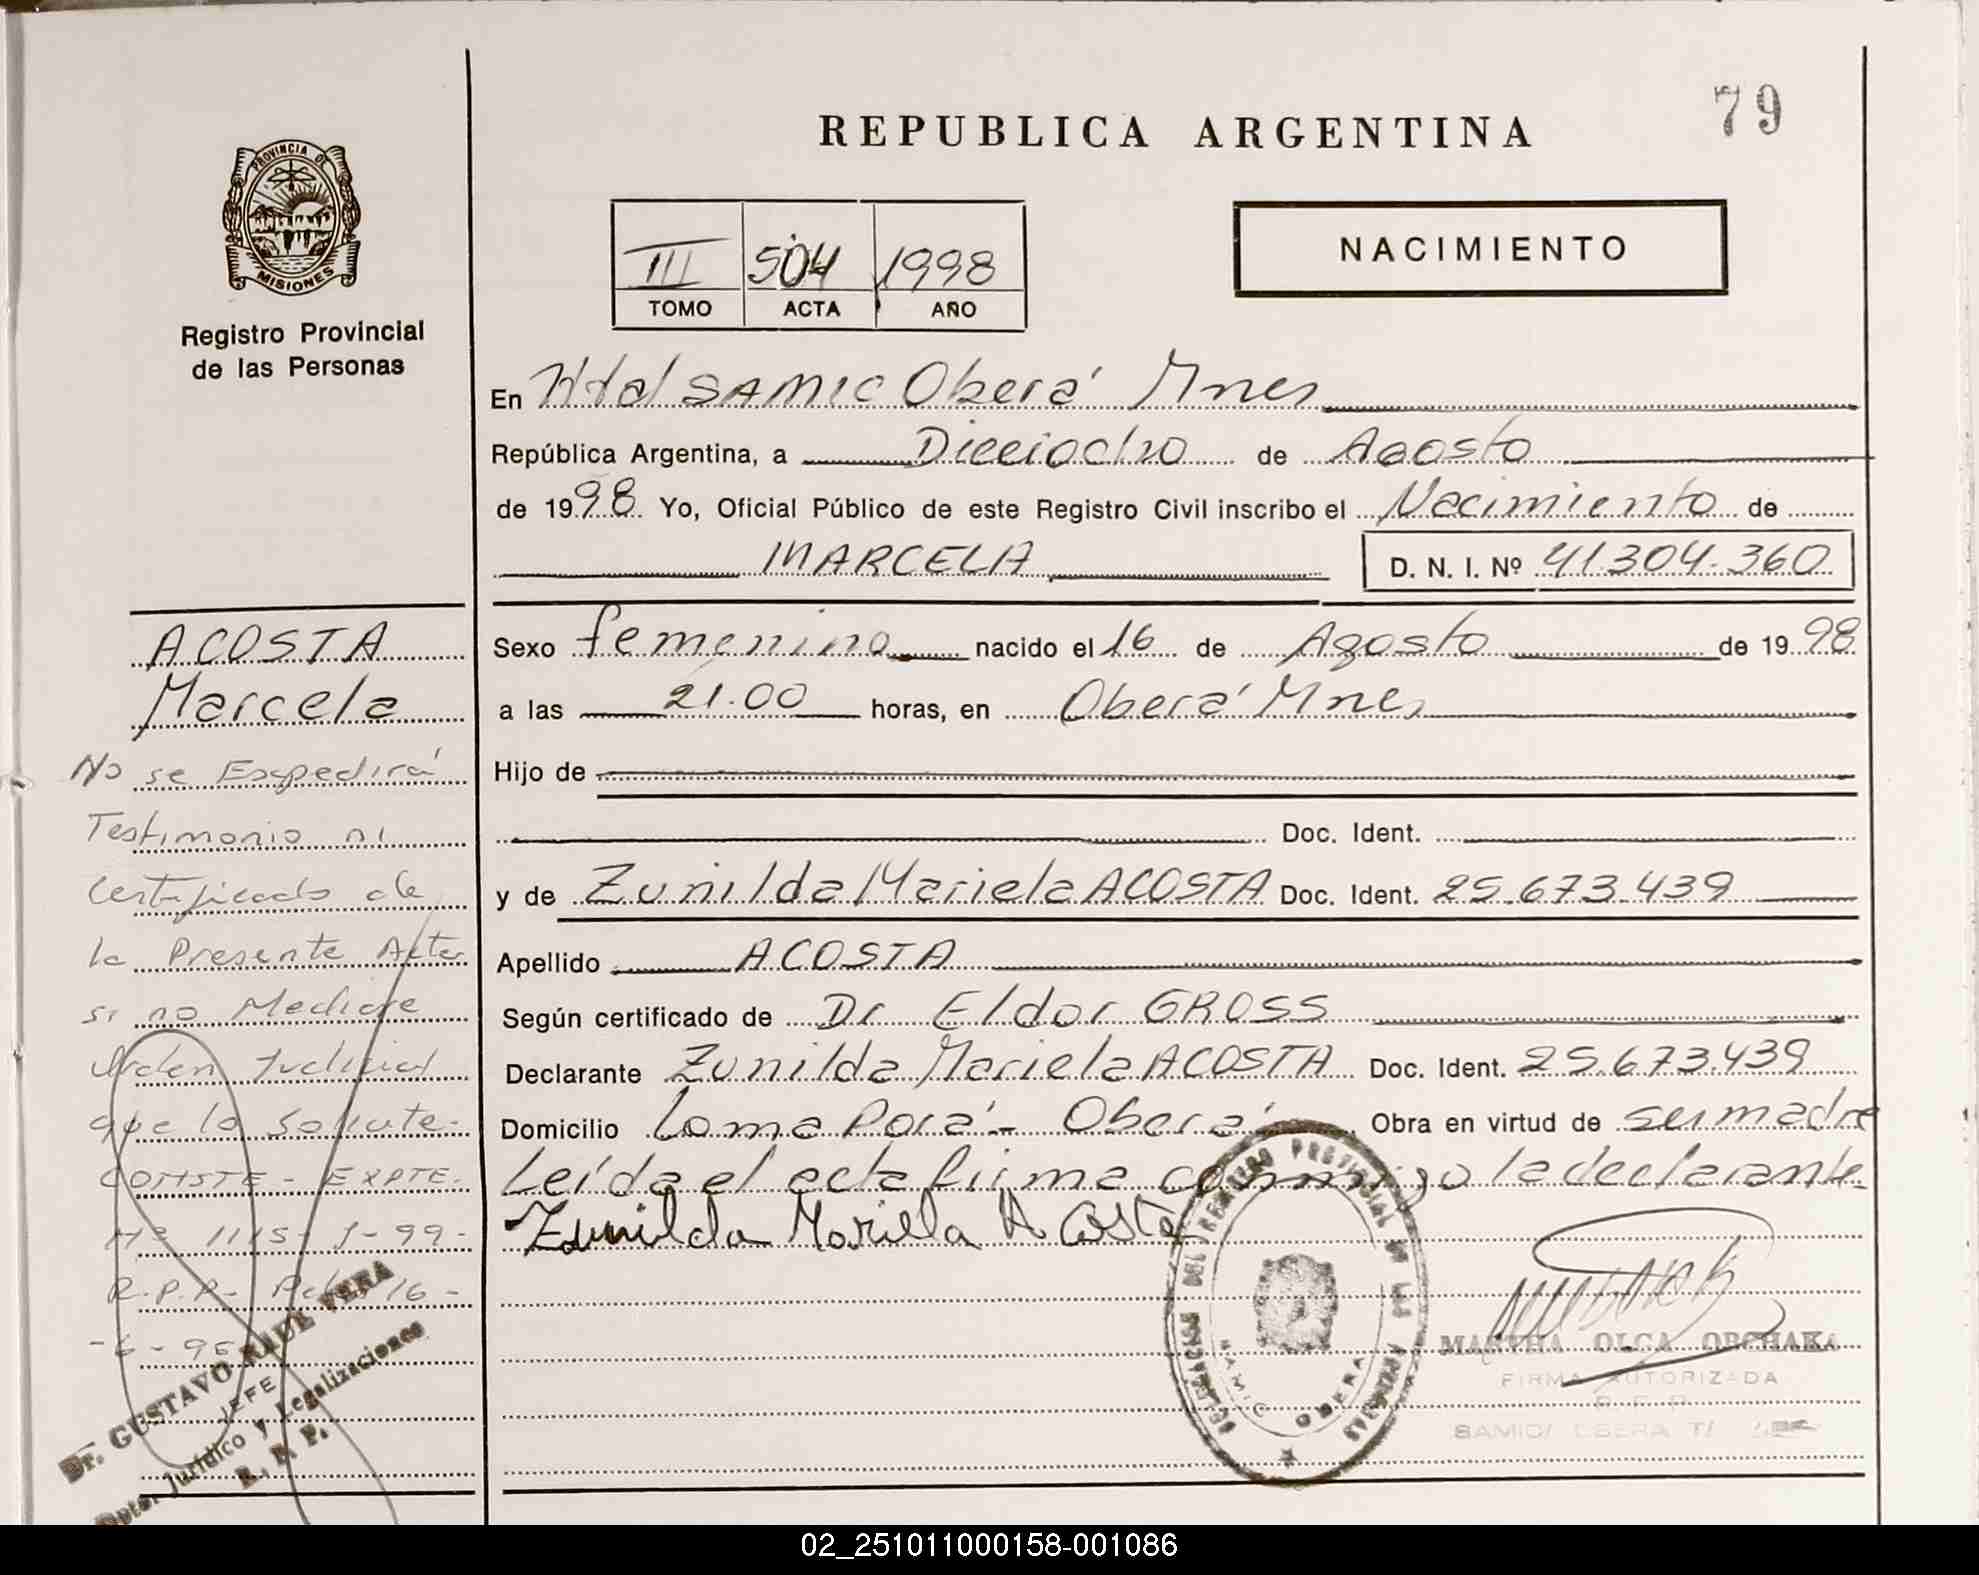 79
REPUBLICA ARGENTINA
PROVINCIA DE
MISIONES
Registro Provincial
de las Personas
III 504 1998
TOMO ACTA AÑO
NACIMIENTO
En Htal SAMIC Oberá Mnes
República Argentina, a Dieciocho de Agosto
de 1998 Yo, Oficial Público de este Registro Civil inscribo el Nacimiento de
MARCELA D. N. I. Nº 41.304.360
Sexo femenino nacido el 16 de Agosto de 1998
a las 21.00 horas, en Oberá Mnes
Hijo de
Doc. Ident.
y de Zunilda Mariela ACOSTA Doc. Ident. 25.673.439
Apellido ACOSTA
Según certificado de Dr Eldor GROSS
Declarante Zunilda Mariela ACOSTA Doc. Ident. 25.673.439
Domicilio Loma Porá - Oberá Obra en virtud de ser madre
Leída el acta firma conmigo la declarante
Zunilda Mariela Acosta
DELEGACION DEL REGISTRO PROVINCIAL DE LAS PERSONAS
SAMIC OBERA
MARTHA OLGA OBCHAKA
FIRMA AUTORIZADA
R. P. P.
SAMIC/ OBERA
ACOSTA
Marcela
No se Expedirá
Testimonio ni
Certificado de
la Presente Acta
si no Mediare
Orden Judicial
que lo Solicite.
CONSTE - EXPTE.
Nº 1115- J-99-
R.P.P- 16-
Dr. GUSTAVO VERA
JEFE
Dpto. Jurídico y Legalizaciones
R. P. P.
02_251011000158-001086